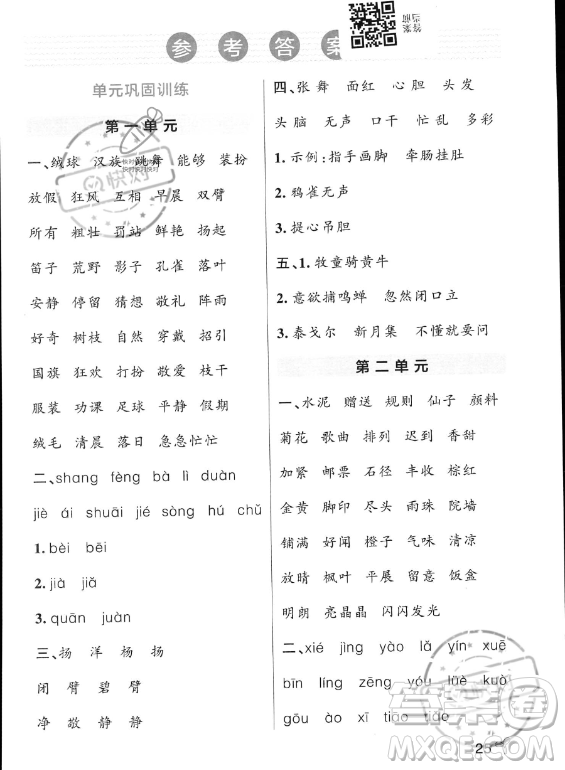 参考答案
答案
当前
单元巩固训练
第一单元
一、绒球 汉族 跳舞 能够 装扮
放假 狂风 互相 早晨 双臂
所有 粗壮 罚站 鲜艳 扬起
笛子 荒野 影子 孔雀 落叶
安静 停留 猜想 敬礼 阵雨
好奇 树枝 自然 穿戴 招引
国旗 狂欢 打扮 敬爱 枝叶
服装 功课 足球 平静 假期
绒毛 清晨 落日 急急忙忙
二、shang fèng bà lì duàn
jiè ái shuāi jié sòng hú chǔ
1. bèi bēi
2. jià jiǎ
3. quān juàn
三、扬 洋 杨 扬
闭 臂 碧 臂
净 敬 静 静
四、张 舞 面红 心胆 头发
头脑 无声 口干 忙乱 多彩
1. 示例:指手画脚 牵肠挂肚
2. 鸦雀无声
3. 提心吊胆
五、1. 牧童骑黄牛
2. 意欲捕鸣蝉 忽然闭口立
3. 泰戈尔 新月集 不懂就要问
第二单元
一、水泥 赠送 规则 仙子 颜料
菊花 歌曲 排列 迟到 香甜
加紧 邮票 石径 丰收 棕红
金黄 脚印 尽头 雨珠 院墙
铺满 好闻 橙子 气味 清凉
放晴 枫叶 平展 留意 饭盒
明朗 亮晶晶 闪闪发光
二、xié jìng yào lǎ yín xuě
bīn líng zēng yóu lüè kuò
gōu ào xī tiāo
25
快对
MXQE.COM